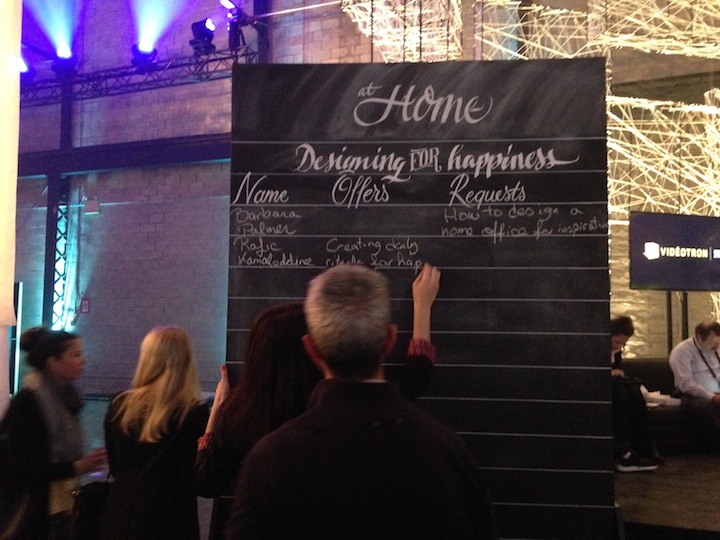 at Home
Designing FOR happiness
Name Offers Requests
Barbara How to design a
Palmer home office for inspiration
Rafic Creating daily
Kamaleddine rituals for hap
VIDÉOTRON